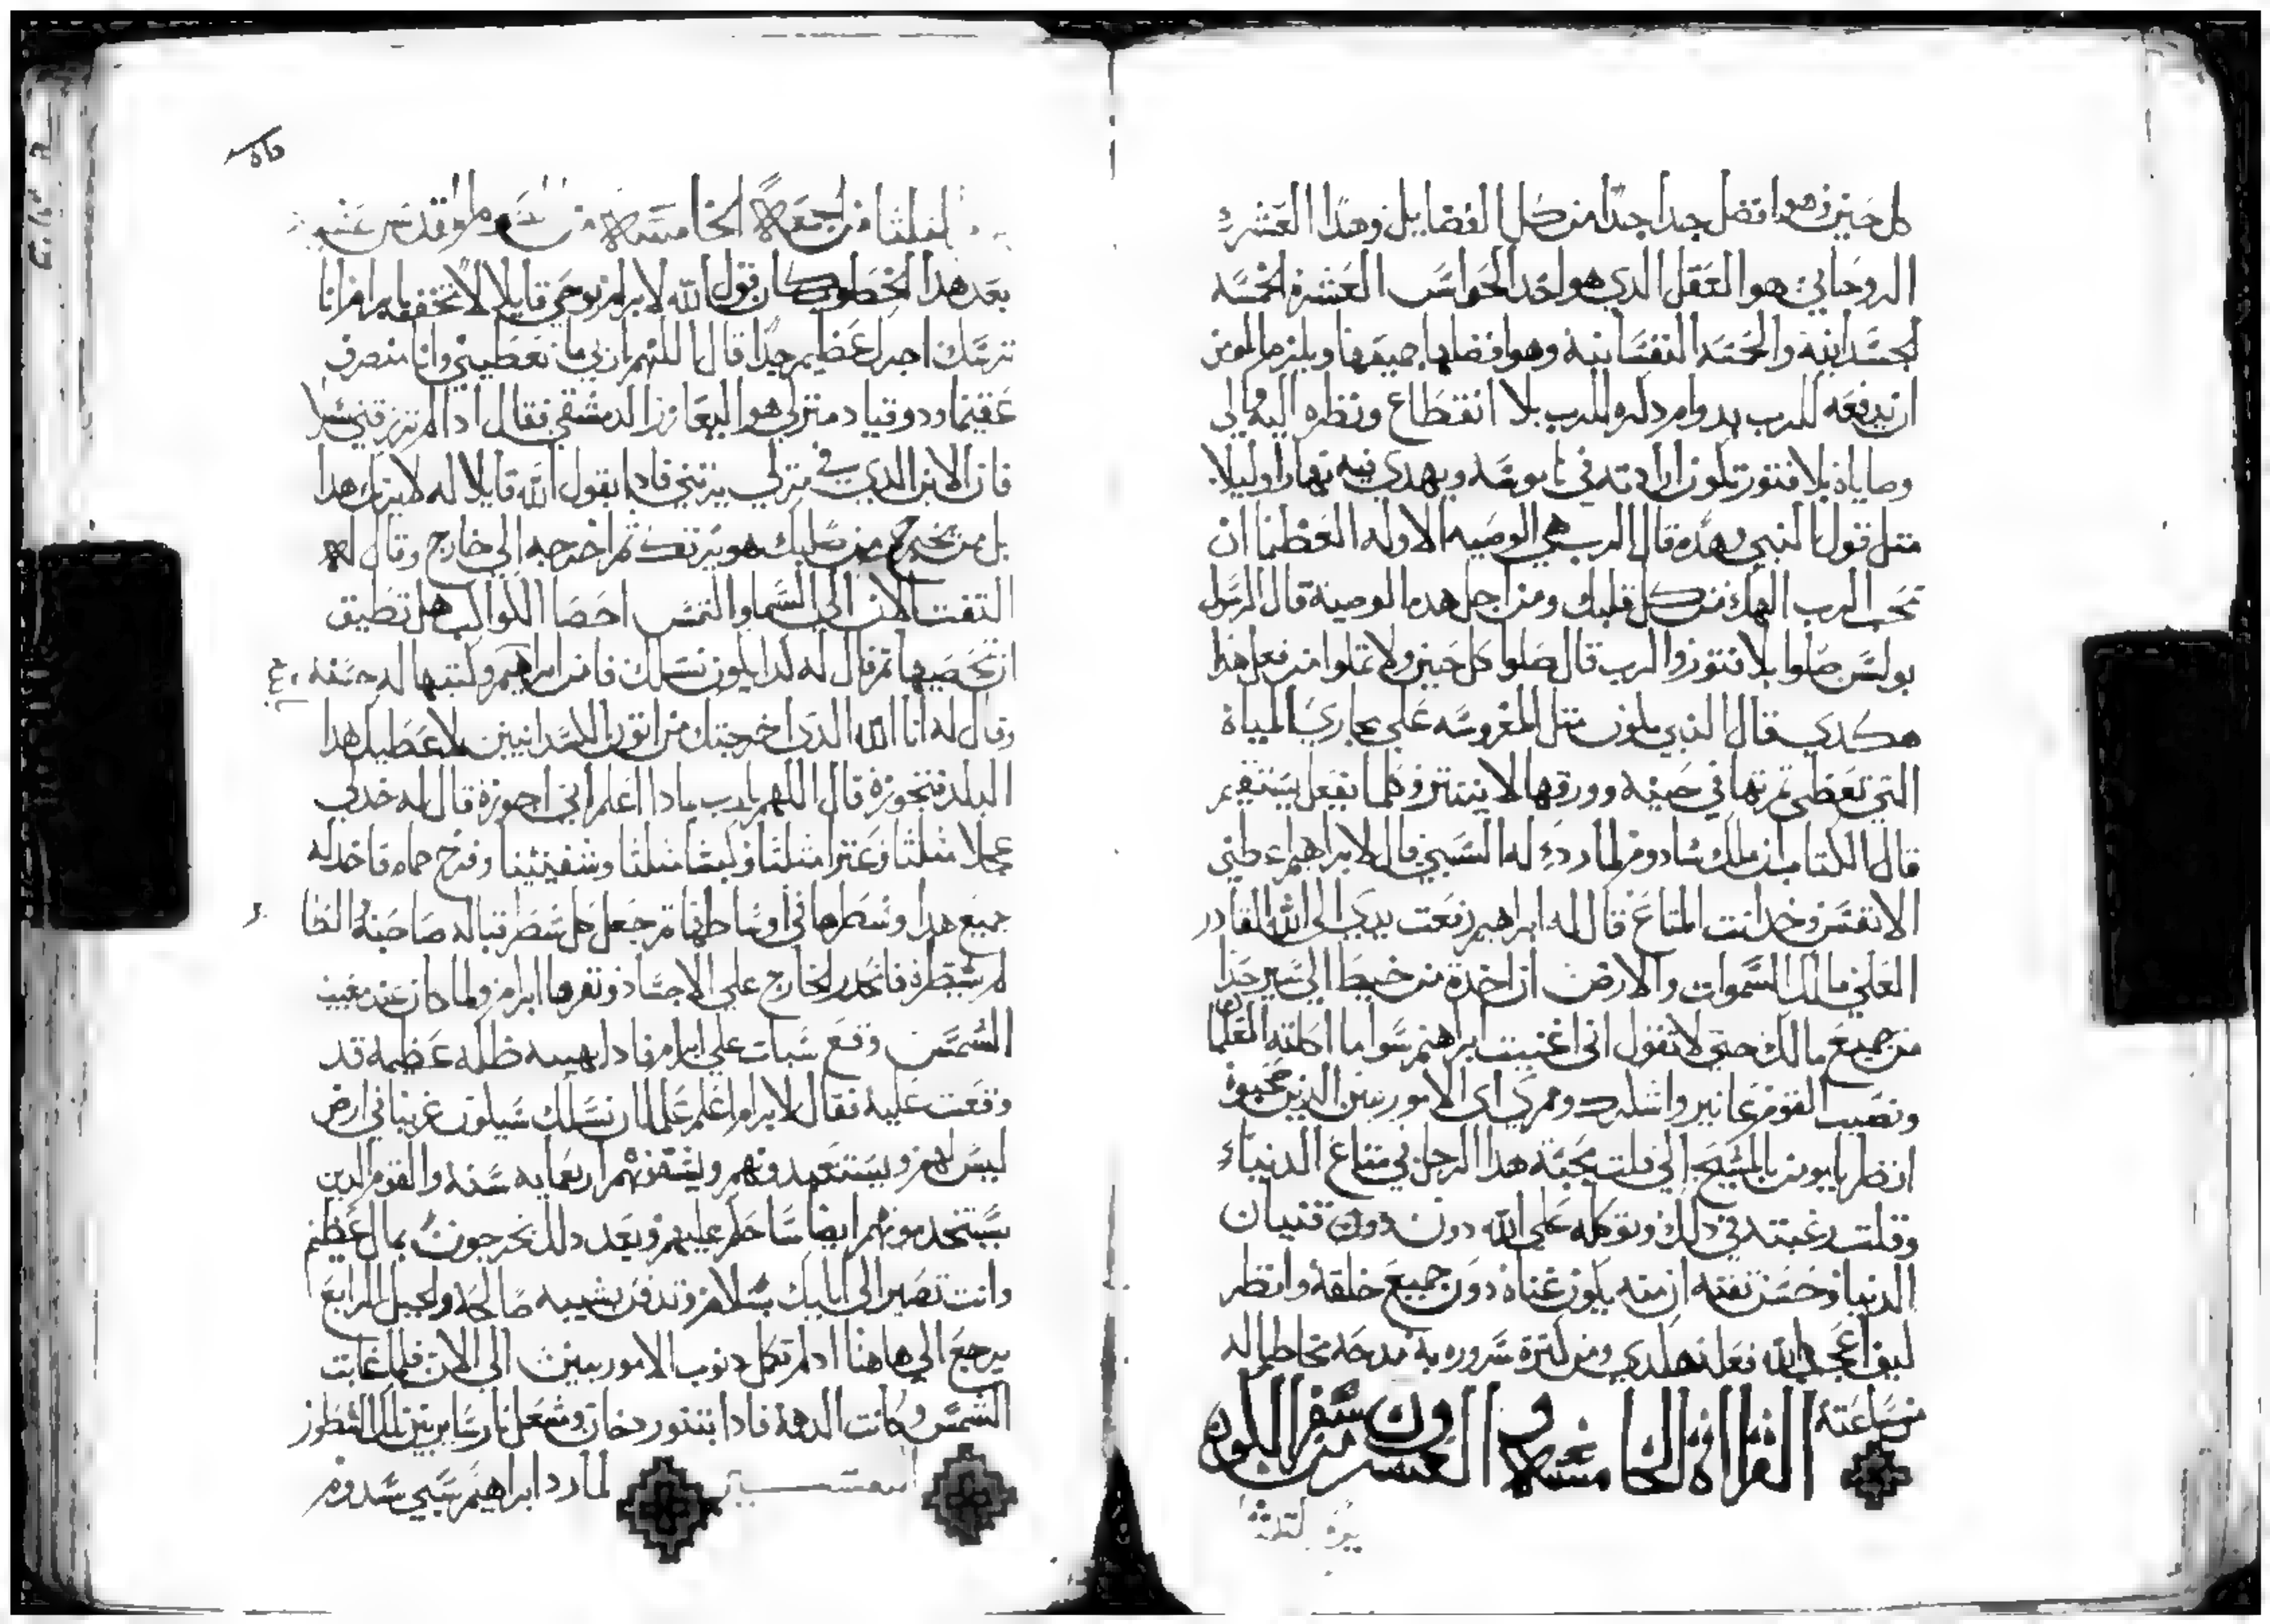 كل حين فهو افضل جدا جدا من كل الفضايل وهدا العشر
الروحاني هو العقل الدي هو احد الحواس العشره الخمسه
الجسدانيه والخمسه النفسانيه وهو افضلها جميعها ويلزم المومن
ان يدفعه للرب بدوام دكره للرب بلا انقطاع ونظره اليه والي
وصاياه بلا فتور تكون ارادته في ناموسه ويهدي فيه نهارا وليلا
متل قول النبي وهده قال الرب هي الوصيه الاوله العظما ان
تحب الرب الهك من كل قلبك ومن اجل هده الوصية قال الرسول
بولس صلوا بلا فتور والرب قال صلوا كل حين ولا تملوا من فعل هدا
هكدي قال النبي يكون متل المغروسه على مجاري المياة
التي تعطي تمرتها في حينه وورقها لا ينتتر وكلما يفعل يستقيم
قال الكتاب ان ملك سادوم لما ردد له السبي قال لابراهيم اعطني
الانفس وخد انت المتاع قال له ابراهيم رفعت يدي الى الله القادر
العلي مالك السموات والارض ان اخدة من خيط الي سير حدا
من جميع مالك حتى لا تقول اني اغنيت ابرهيم سوا ما اكلته الغلمان
ونصيب القوم عانير واشكول وممري اى الاموريين الدين صحبوة
انظر يا مومن بالمسيح الي قلت محبة هدا الرجل في متاع الدنياء
وقلت رغبته في دلك وتوكله على الله دون دون قنيان
الدنيا وحسن تقته ان منه يكون غناة دون جميع خلقه وانظر
كيف اعجب الله فعله هكدي ومن كترة سروره به مدحه مخاطبا له
من ساعته
القراه الخامسه والعشرون من سفر التكوين
يوم التلتا
التلتا من الجمعه الخامسه من الصوم المقدس
بعد هدا الخطاب كان قول الله لابرام بوحي قايلا لا تخف يابرام انا
ترسك اجرك عظيم جدا قال اللهم ان بي ما تعطيني وانا منصرف
عقيما ودو قياد منزلي هو اليعازر الدمشقي فقال ادا لم ترزقني نسلا
فان الابن الدي في منزلي يرتني فادا بقول الله قايلا له لا يرتك هدا
بل من يخرج من صلبك هو يرتك تم اخرجه الي خارج وقال له
التفت الان الى السما والتمس احصا الكواكب هل تطيق
ان تحصيها تم قال له كدا يكون نسلك فامن ابراهيم وكتبها له حسنه
وقال له انا الله الدي اخرجتك من اتون الكسدانيين لاعطيك هدا
البلد فتجوزة قال اللهم يارب بمادا اعلم اني احوزة قال له خد لي
عجلا متلتا وعنزا متلتا وكبشا متلتا وشفنينا وفرخ حمام فاخد له
جميع هدا وشطرها في اوساطها تم جعل كل شطر قبالة صاحبه والطا
لم يشطرة فانحدر الخارج علي الاجساد ونفرها ابرام ولما كان عند مغيب
الشمس وقع سبات علي ابرام فادا بهيبه ظلمه عظيمه قد
وقعت علية فقال لابرام اعلم علما ان نسلك سيكون غريبا في ارض
ليس لهم ويستعبدونهم ويشقونهم اربعمايه سنه والقوم الدين
يستخدمونهم ايضا ساحكم عليهم وبعد دلك يخرجون بمال عظيم
وانت تصير الى ابايك بسلام وتدفن بشيبه صالحه والجيل الرابع
يرجع الي هاهنا ادلم تكمل دنوب الاموريين الى الان فلما غابت
الشمس وكانت الدهمة فادا بتنور دخان وشعل نار سايره بين تلك الشطور
التفسير لما رد ابراهيم سبي سدوم